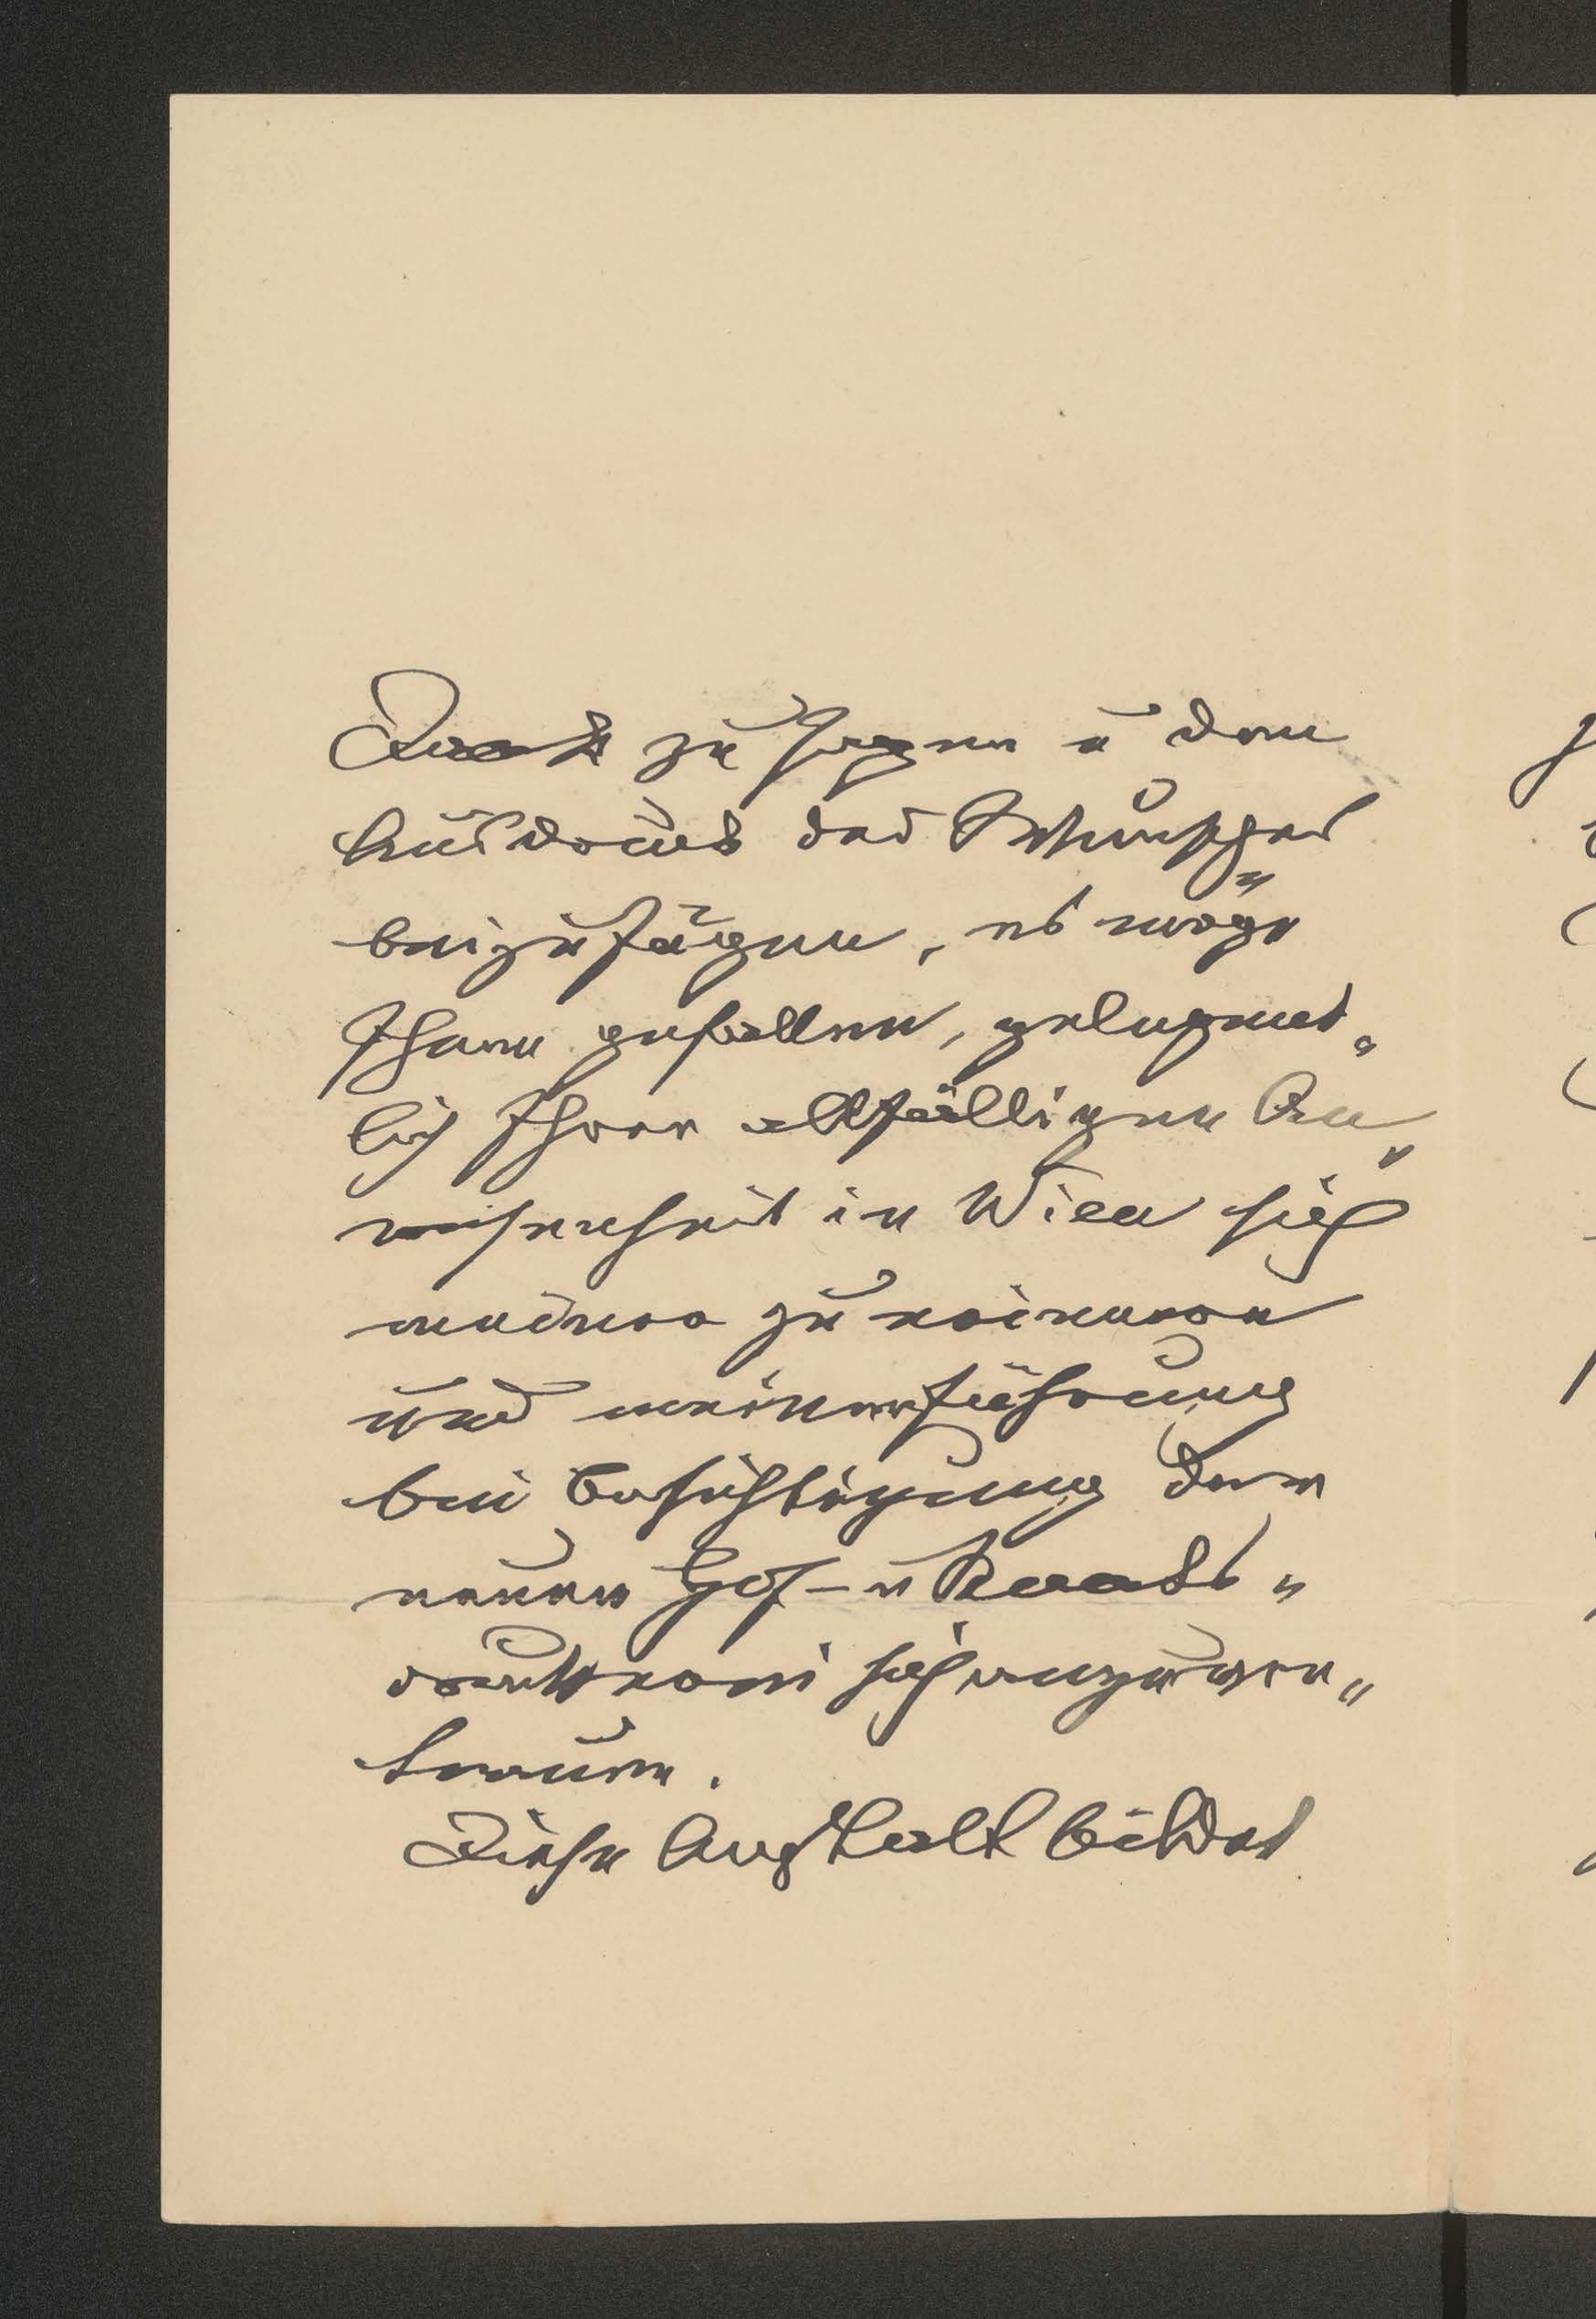 Dank zu sagen u den
Ausdruck des Wunsches
beizufügen, es möge
Ihnen gefallen, gelegent„
lich Ihrer allfälligen An„
wesenheit in Wien sich
meiner zu erinnern
und meiner Führung
bei Besichtigung der
neuen Hof- u Staats„
druckerei sich anzuver„
trauen.
Diese Anstalt bildet